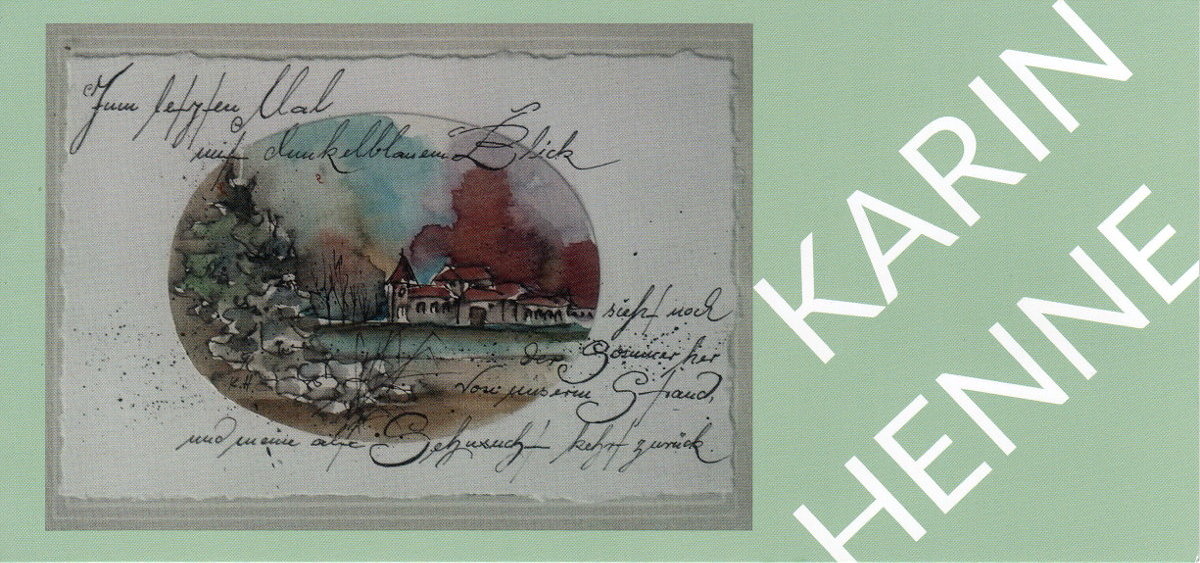 Zum letzten Mal
mit dunkelblauem Blick
sieht noch
der Sommer her
von unserm Strand,
und meine alte Sehnsucht kehrt zurück.
K.H
KARIN
HENNE